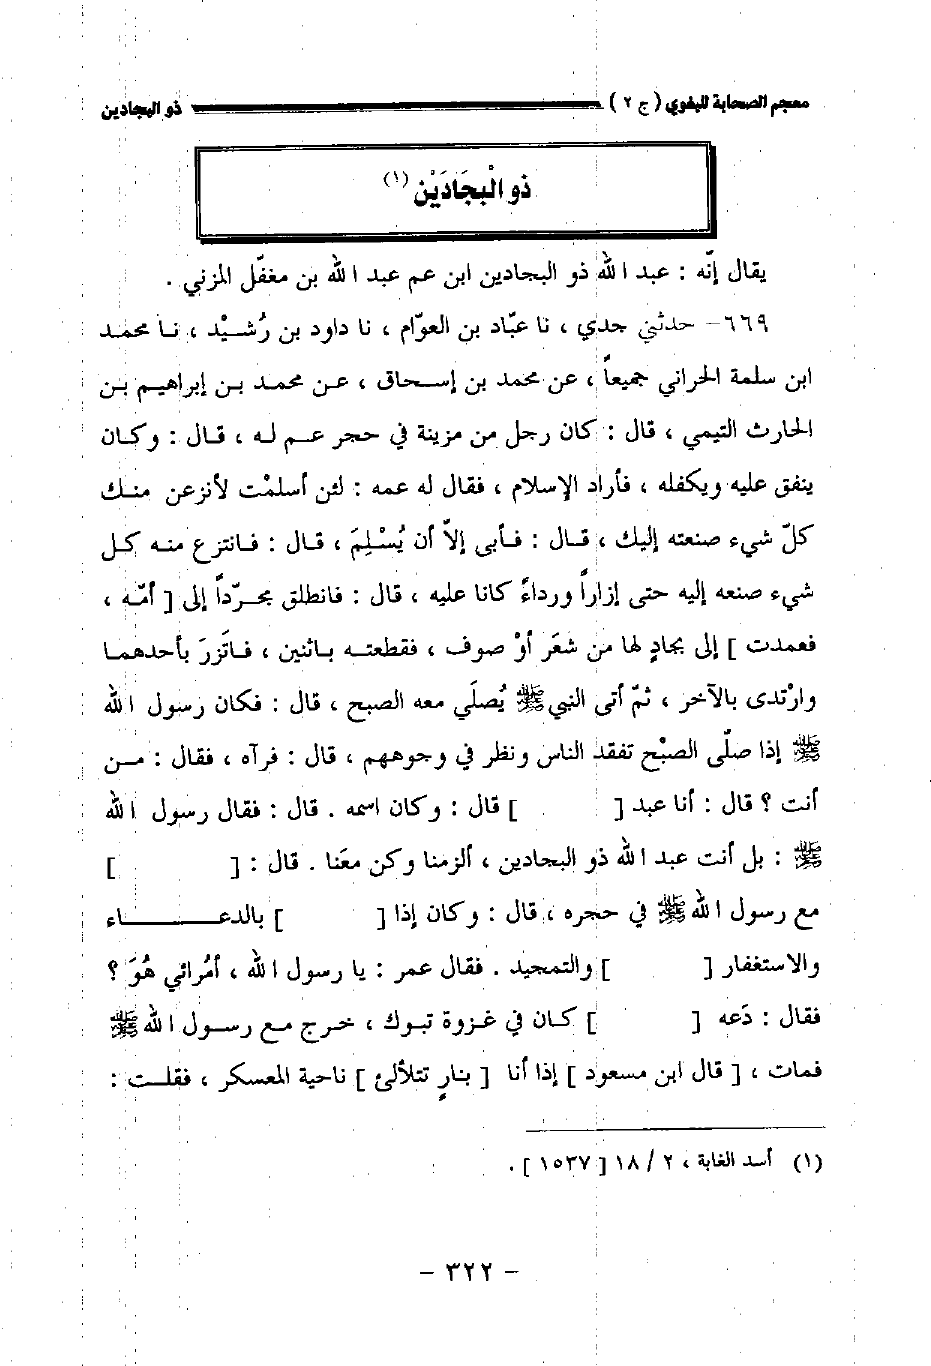 معجم الصحابة للبغوي ( ج ٢ ) ذو البجادين
ذو الْبِجَادَيْن (١)
يقال إنّه : عبد الله ذو البجادين ابن عم عبد الله بن مغفّل المزني .
٦٦٩- حدثني جدي ، نا عبّاد بن العوّام ، نا داود بن رُشَيْد ، نا محمد
ابن سلمة الحراني جميعاً ، عن محمد بن إسحاق ، عن محمد بن إبراهيم بن
الحارث التيمي ، قال : كان رجل من مزينة في حجر عم له ، قال : وكان
ينفق عليه ويكفله ، فأراد الإسلام ، فقال له عمه : لئن أسلمْت لأنزعن منك
كلّ شيء صنعته إليك ، قال : فأبى إلاّ أن يُسْلِمَ ، قال : فانتزع منه كل
شيء صنعه إليه حتى إزاراً ورداءً كانا عليه ، قال : فانطلق مجرّداً إلى [ أمّه ،
فعمدت ] إلى بجادٍ لها من شعَر أوْ صوف ، فقطعته باثنين ، فاتَزرَ بأحدهما
وارْتدى بالآخر ، ثمّ أتى النبي ﷺ يُصلَي معه الصبح ، قال : فكان رسول الله
ﷺ إذا صلّى الصبْح تفقد الناس ونظر في وجوههم ، قال : فرآه ، فقال : من
أنت ؟ قال : أنا عبد [ ] قال : وكان اسمه . قال : فقال رسول الله
ﷺ : بل أنت عبد الله ذو البجادين ، ألزمنا وكن معَنا . قال : [ ]
مع رسول الله ﷺ في حجره ، قال : وكان إذا [ ] بالدعاء
والاستغفار [ ] والتمجيد . فقال عمر : يا رسول الله ، أمُرائي هُوَ ؟
فقال : دَعه [ ] كان في غزوة تبوك ، خرج مع رسول الله ﷺ
فمات ، [ قال ابن مسعود ] إذا أنا [ بنارٍ تتلألئ ] ناحية المعسكر ، فقلت :
(١) أسد الغابة ، ٢ / ١٨ [ ١٥٣٧ ] .
- ٣٢٢ -